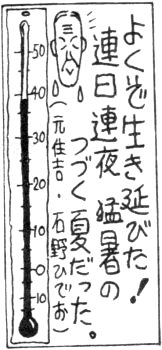 よくぞ生き延びた！
連日連夜 猛暑の
つづく夏だった。
（元住吉・石野ひでお）
50
40
30
20
10
0
10